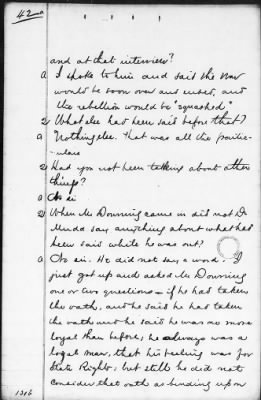 42
and at that interview?
a I spoke to him and said the war
would be soon over and ended, and
the rebellion would be "squashed"
Q What else had been said before that?
a Nothing else. That was all the partic-
-ulars
Q Had you not been talking about other
things?
a No sir
Q When Mr Downing came in did not Dr
Mudd say anything about what had
been said while he was out?
a No sir. He did not say a word. I
just got up and asked Mr Downing
one or two questions - if he had taken
the oath, and he said he had taken
the oath and he said he was no more
loyal than before; he always was a
loyal man, that his feeling was for
State Rights, but still he did not
consider that oath as binding upon
1316